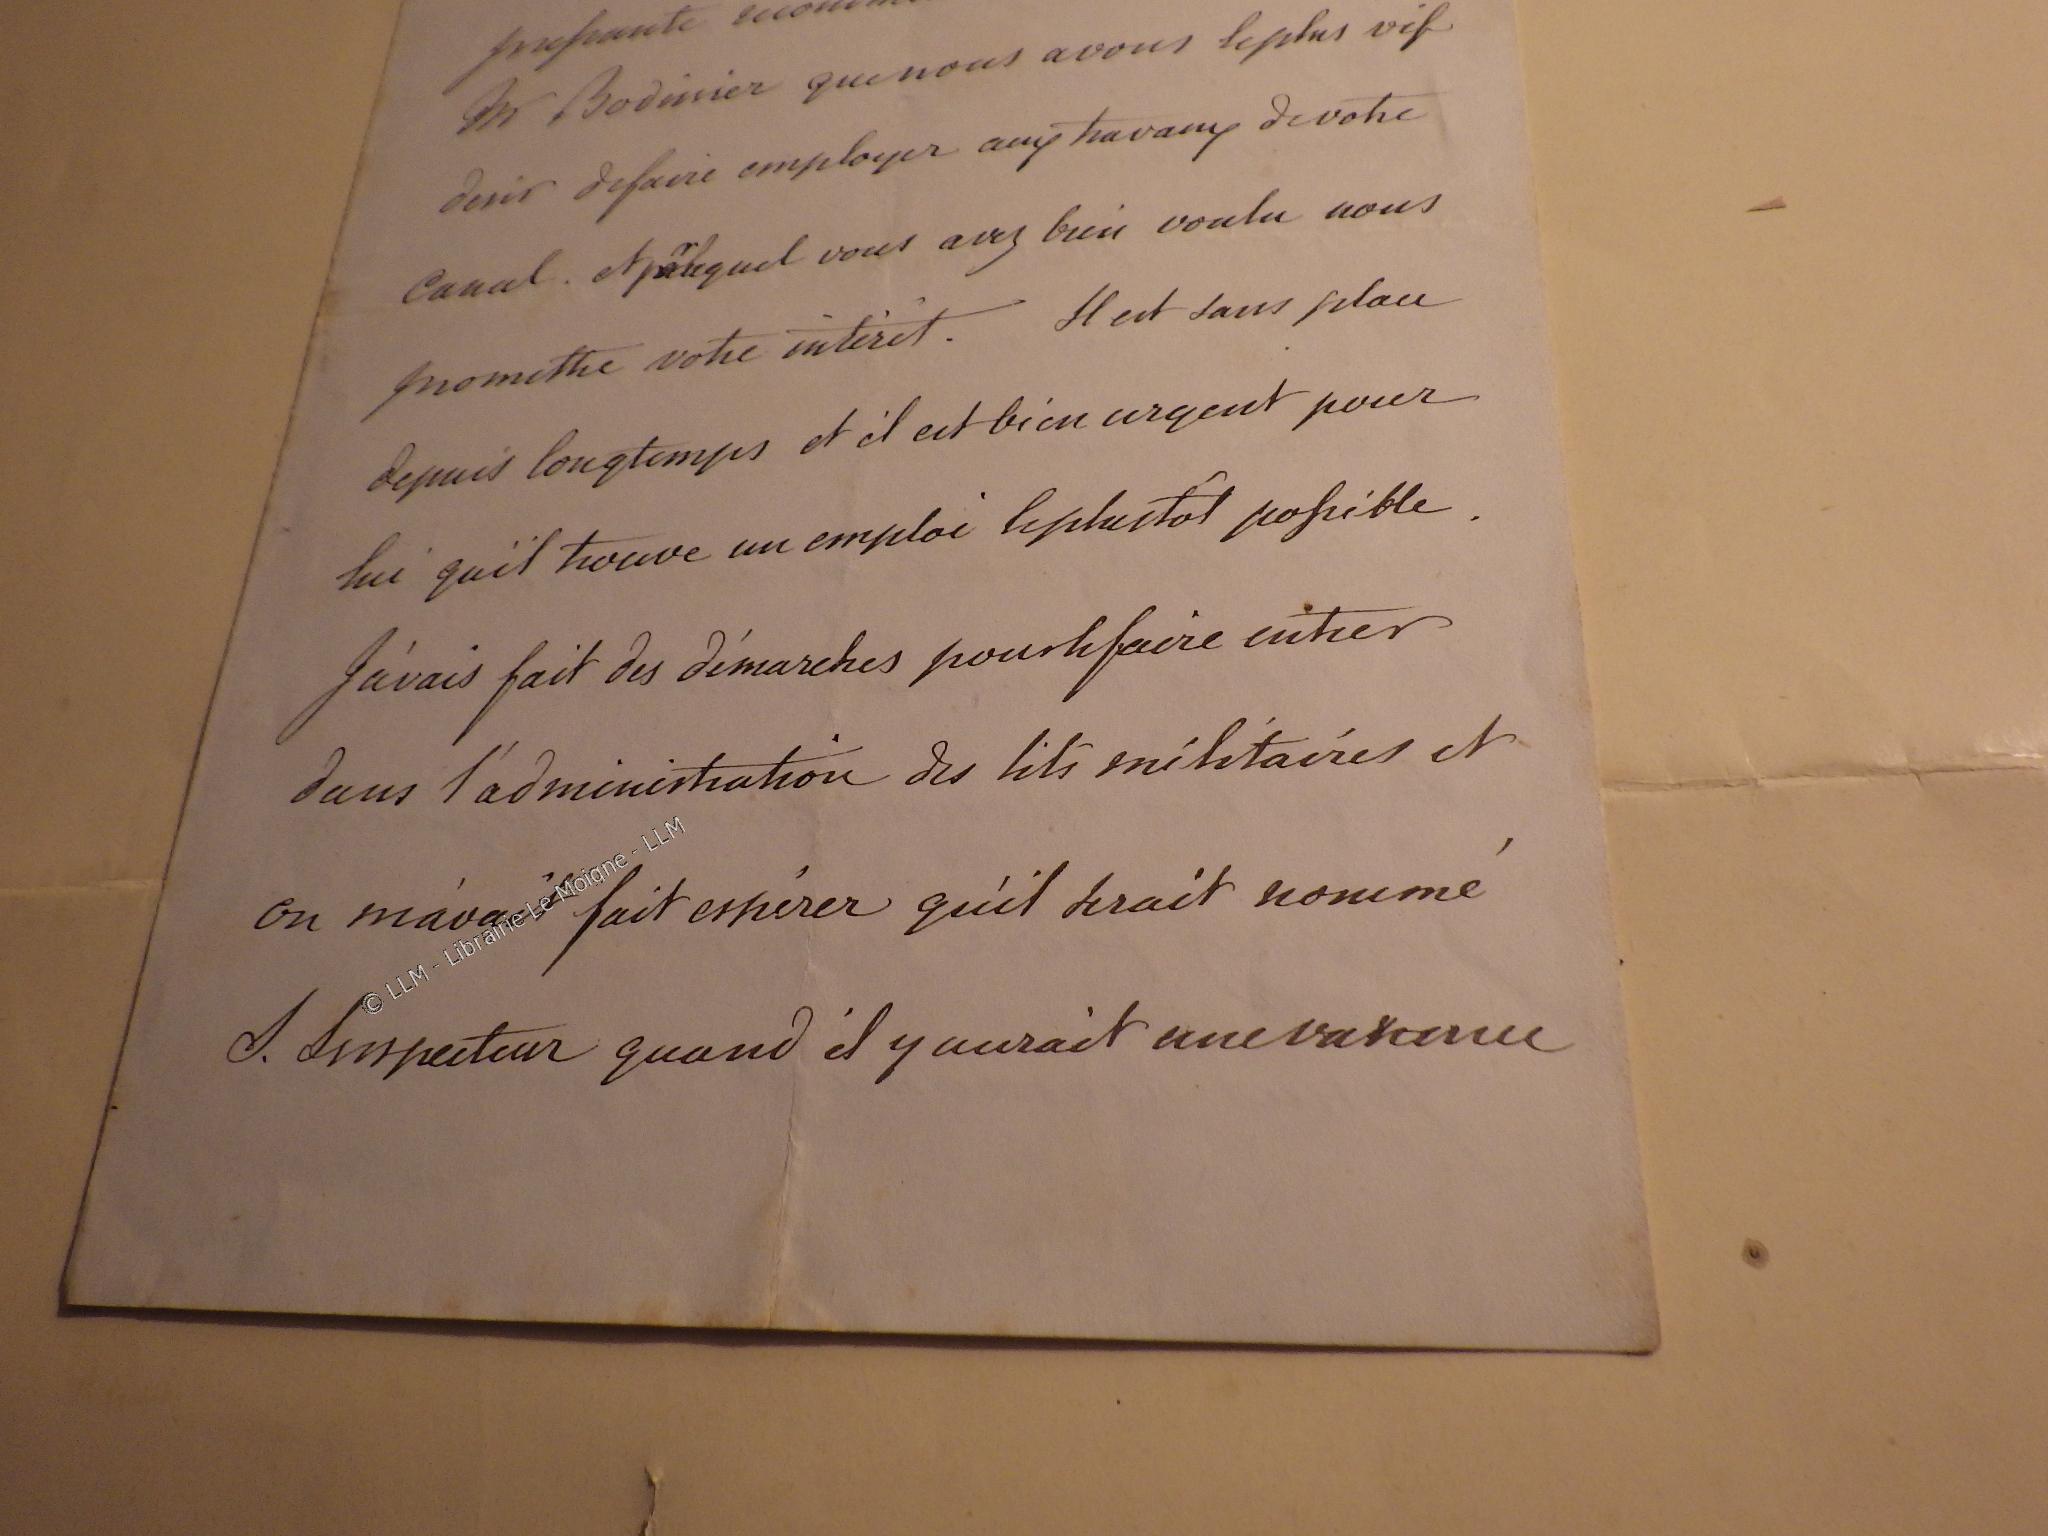 pressante recomm
Mr Bodinier que nous avons le plus vif
desir de faire employer aux travaux de votre
Canal. et pr lequel vous avez bien voulu nous
promettre votre intérêt. Il est sans place
depuis longtemps et il est bien urgent pour
lui qu'il trouve un emploi le plustôt possible.
J'avais fait des démarches pour le faire entrer
dans l'administration des lits militaires et
on m'avait fait espérer qu'il serait nommé
S. Inspecteur quand il y aurait une vacance
© LLM - Librairie Le Moigne - LLM